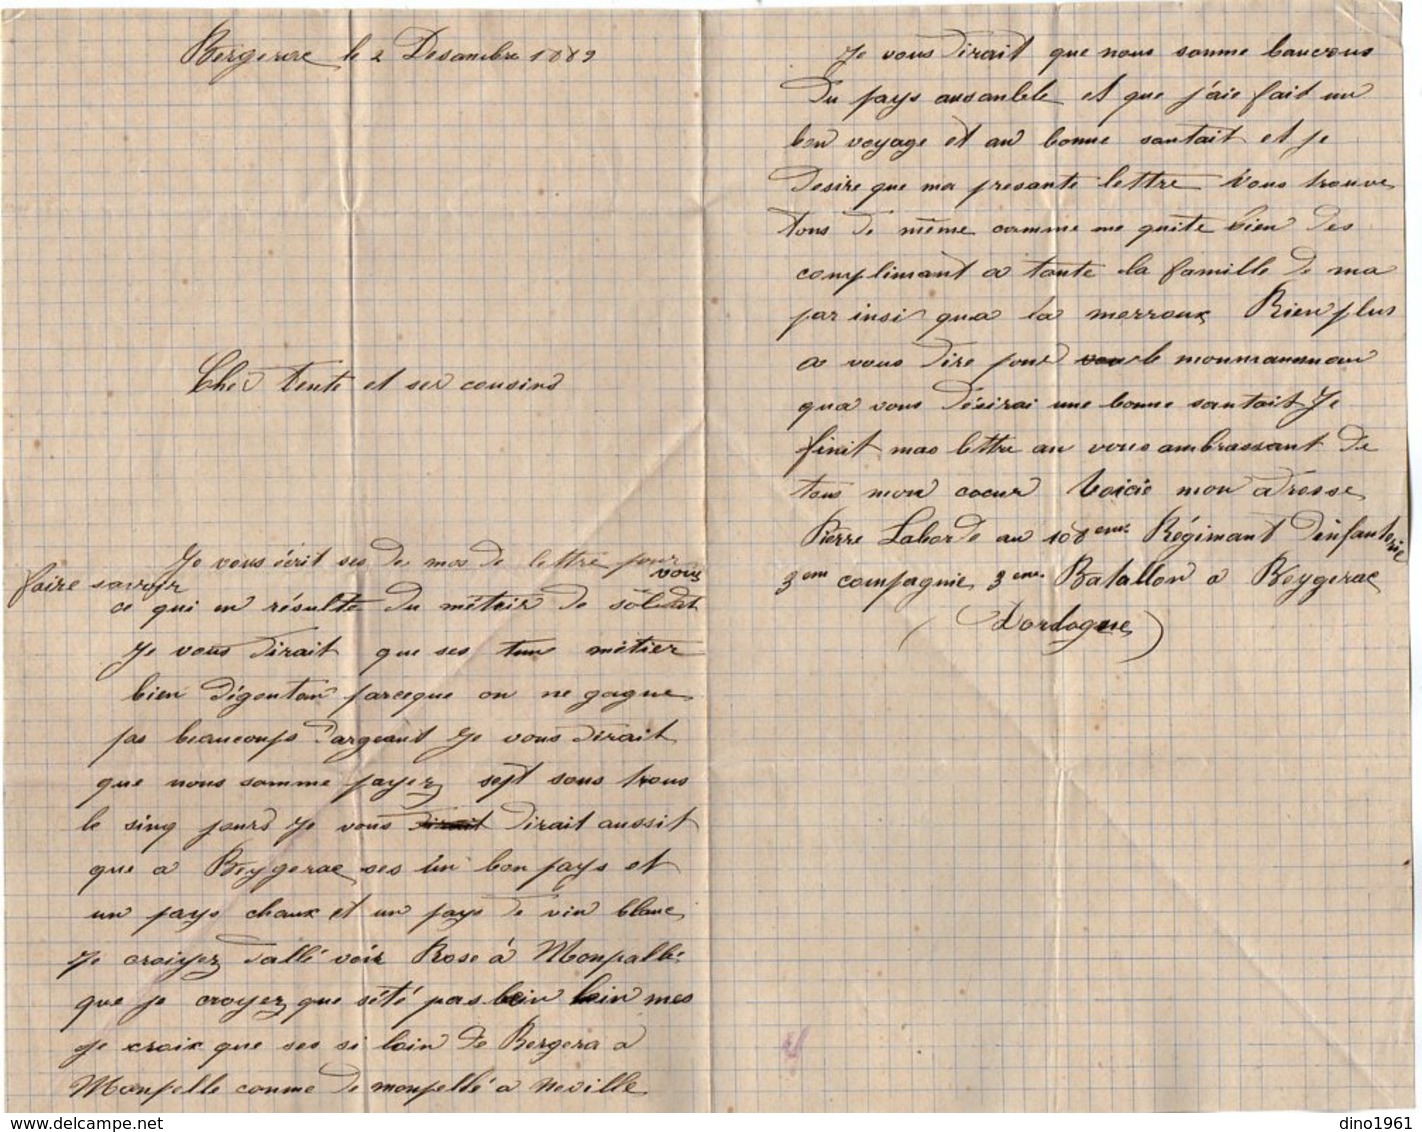 Bergerac le 2 Desambre 1889
Cher tente et ses cousins
Je vous écrit ses de mos de lettre pour vous
faire savoir
ce qui en résulte du métair de sôldat
Je vous dirait que ses tun métier
bien dégoutan parceque on ne gagne
pas beaucoups d'argeant Je vous dirait
que nous somme payez sept sous trous
le sinq jours Je vous dirait dirait aussit
que a Beygerac ses un bon pays et
un pays chaux et un pays de vin blanc
Je croiyez d'allé voir Rose à Monpallé
que je croyez que s'été pas bein loin mes
Je croix que ses si loin de Bergera a
Monpelle comme de monpellé a Neville
Je vous dirait que nous somme baucous
du pays ansanble et que j'aie fait un
bon voyage et an bonne santait et je
desire que ma presante lettre vous trouve
tous de même comme me quite bien des
complimant a toute la famille de ma
par insi qua la merroux Rien plus
a vous dire pour le moumanmau
qua vous désirai une bonne santait Je
finit mas lettre an vous ambrassant de
tous mon coeur Voicie mon adresse
Pierre Laborde au 108eme Régimant d'infanterie
3eme compagnie 3eme Batallon a Beygerac
(Dordogne)
dino1961